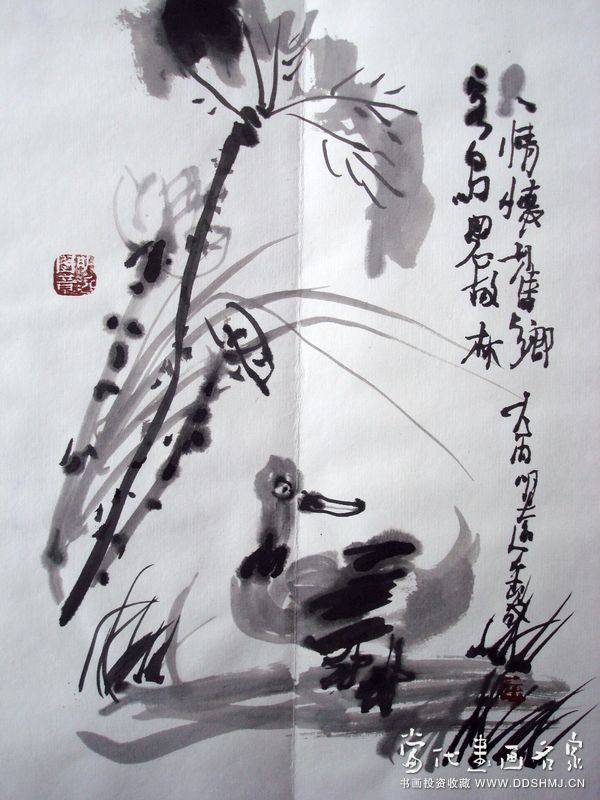 人情懷舊鄉
客鳥思故林
當代書画名家
书画投资收藏 WWW.DDSHMJ.CN